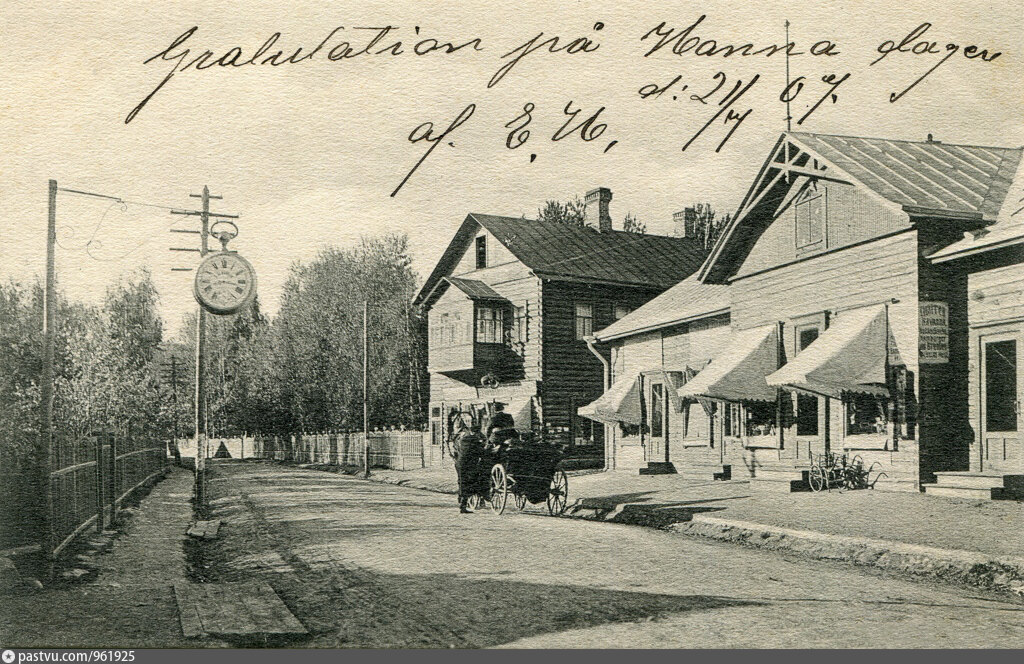 Gratulation på Hanna dagen
d: 21/7 07.
af. E. H.
pastvu.com/961925